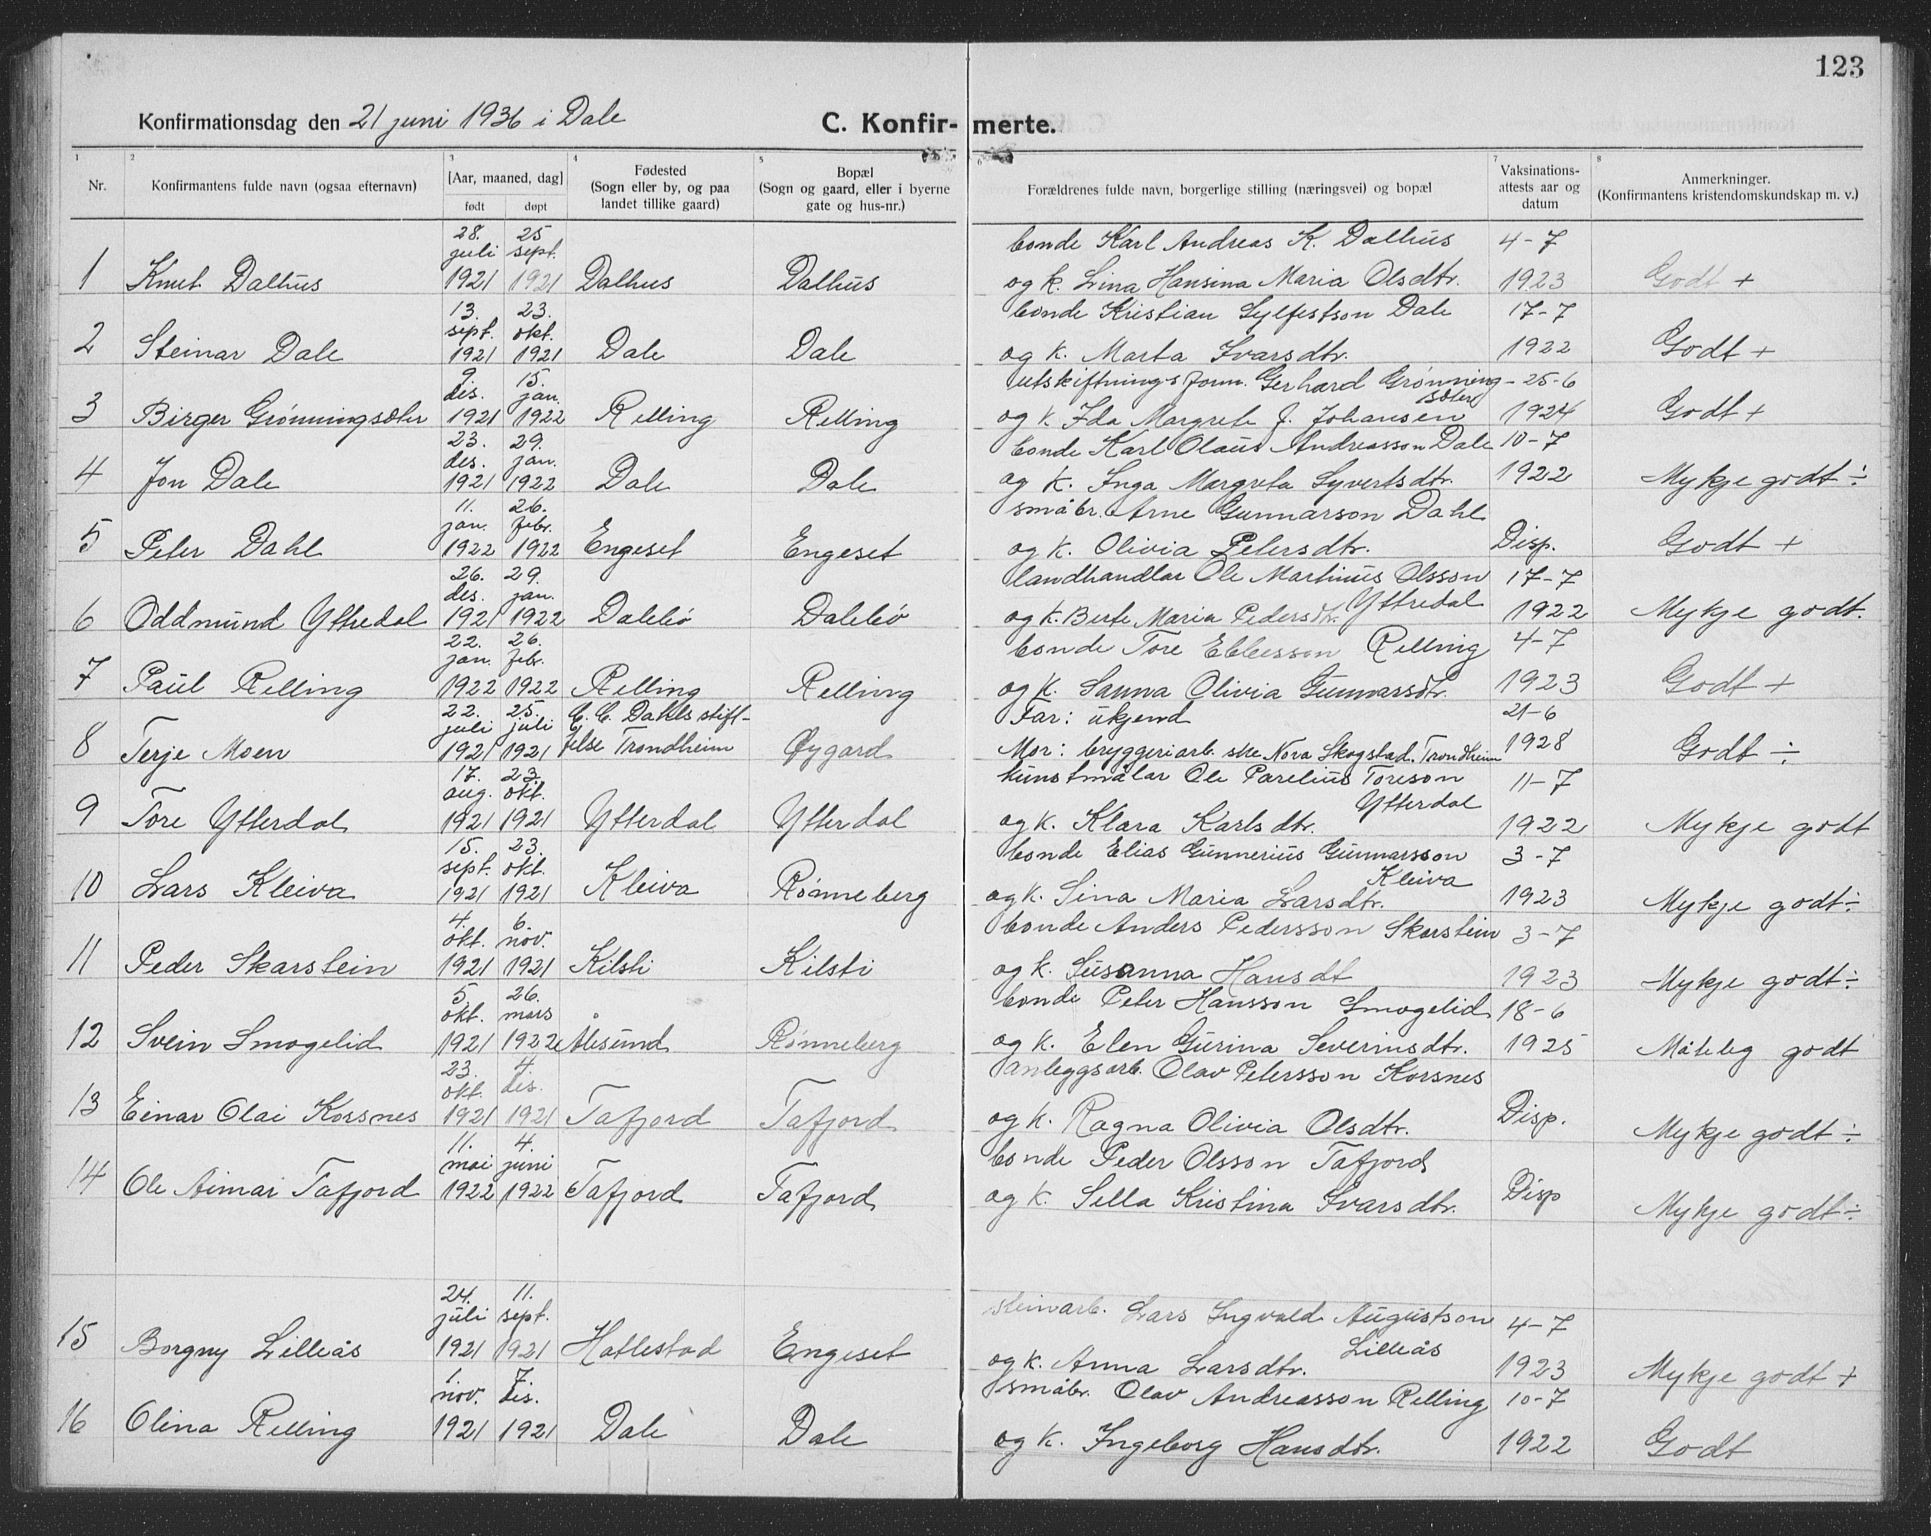 123
Konfirmationsdag den 21 juni 1936 i Dale C. Konfir- merte.
1 2 3 4 5 6 7 8
Nr. Konfirmantens fulde navn (ogsaa efternavn) [Aar, maaned, dag] født døpt Fødested (Sogn eller by, og paa landet tillike gaard) Bopæl (Sogn og gaard, eller i byerne gate og hus-nr.) Forældrenes fulde navn, borgerlige stilling (næringsvei) og bopæl Vaksinationsattests aar og datum Anmerkninger. (Konfirmantens kristendomskundskap m. v.)
28. 25 bonde Karl Andreas K. Dalhus 4-7
juli sept.
1 Knut Dalhus 1921 1921 Dalhus Dalhus og k. Lina Hansina Maria Olsdtr. 1923 Godt +
13. 23. bonde Kristian Sylfestson Dale 17-7
sept. okt.
2 Steinar Dale 1921 1921 Dale Dale og k. Marta Ivarsdtr. 1922 Godt +
9. 15. utskiftningsform. Gerhard Grønning- 25-6
des. jan. sæter
3 Birger Grønningsæter 1921 1922 Relling Relling og k. Ida Margrete J. Johansen 1924 Godt +
23. 29. bonde Karl Olaus Andreasson Dale 10-7
des. jan.
4 Jon Dale 1921 1922 Dale Dale og k. Inga Margreta Syvertsdtr. 1922 Mykje godt ÷
11. 26. småbr. Arne Gunnarson Dahl
jan. febr.
5 Peter Dahl 1922 1922 Engeset Engeset og k. Olivia Petersdtr. Disp. Godt +
26. 29. landhandlar Ole Martinus Olsson 17-7
des. jan. Yttredal
6 Oddmund Yttredal 1921 1922 Dalebø Dalebø og k. Berte Maria Pedersdtr. 1922 Mykje godt.
22. 26. bonde Tore Ebbesson Relling 4-7
jan. febr.
7 Paul Relling 1922 1922 Relling Relling og k. Sanna Olivia Gunnarsdtr. 1923 Godt +
22. 25. E. C. Dahls stift- Far: ukjend 21-6
juli juli
8 Terje Moen 1921 1921 else Trondheim Øygard Mor: bryggeriarb. ske Nora Skogstad. Trondheim 1928 Godt ÷
17. 23. kunstmålar Ole Parelius Toreson 11-7
aug. okt. Ytterdal
9 Tore Ytterdal 1921 1921 Ytterdal Ytterdal og k. Klara Karlsdtr. 1922 Mykje godt
15. 23. bonde Elias Gunnerius Gunnarsson 3-7
sept. okt. Kleiva
10 Lars Kleiva 1921 1921 Kleiva Rønneberg og k. Sina Maria Larsdtr. 1923 Mykje godt ÷
4. 6. bonde Anders Pedersson Skarstein 3-7
okt. nov.
11 Peder Skarstein 1921 1921 Kilsti Kilsti og k. Susanna Hansdt 1923 Mykje godt ÷
5. 26. bonde Peter Hansson Smogelid 18-6
okt. mars
12 Svein Smogelid 1921 1922 Ålesund Rønneberg og k. Elen Gurina Severinsdtr. 1925 Måteleg godt
23. 4. anleggsarb. Olav Petersson Korsnes
okt. des.
13 Einar Olai Korsnes 1921 1921 Tafjord Tafjord og k. Ragna Olivia Olsdtr. Disp. Mykje godt ÷
11. 4. bonde Peder Olsson Tafjord
mai juni
14 Ole Aimar Tafjord 1922 1922 Tafjord Tafjord og k. Sella Kristina Ivarsdtr. Disp Mykje godt ÷
24. 11. steinarb. Lars Ingvald Augustson 4-7
juli sept. Lilleås
15 Borgny Lilleås 1921 1921 Hatlestad Engeset og k. Anna Larsdtr. 1923 Mykje godt +
1. 7. småbr. Olav Andreasson Relling 10-7
nov. des.
16 Olina Relling 1921 1921 Dale Dale og k. Ingeborg Hansdtr. 1922 Godt